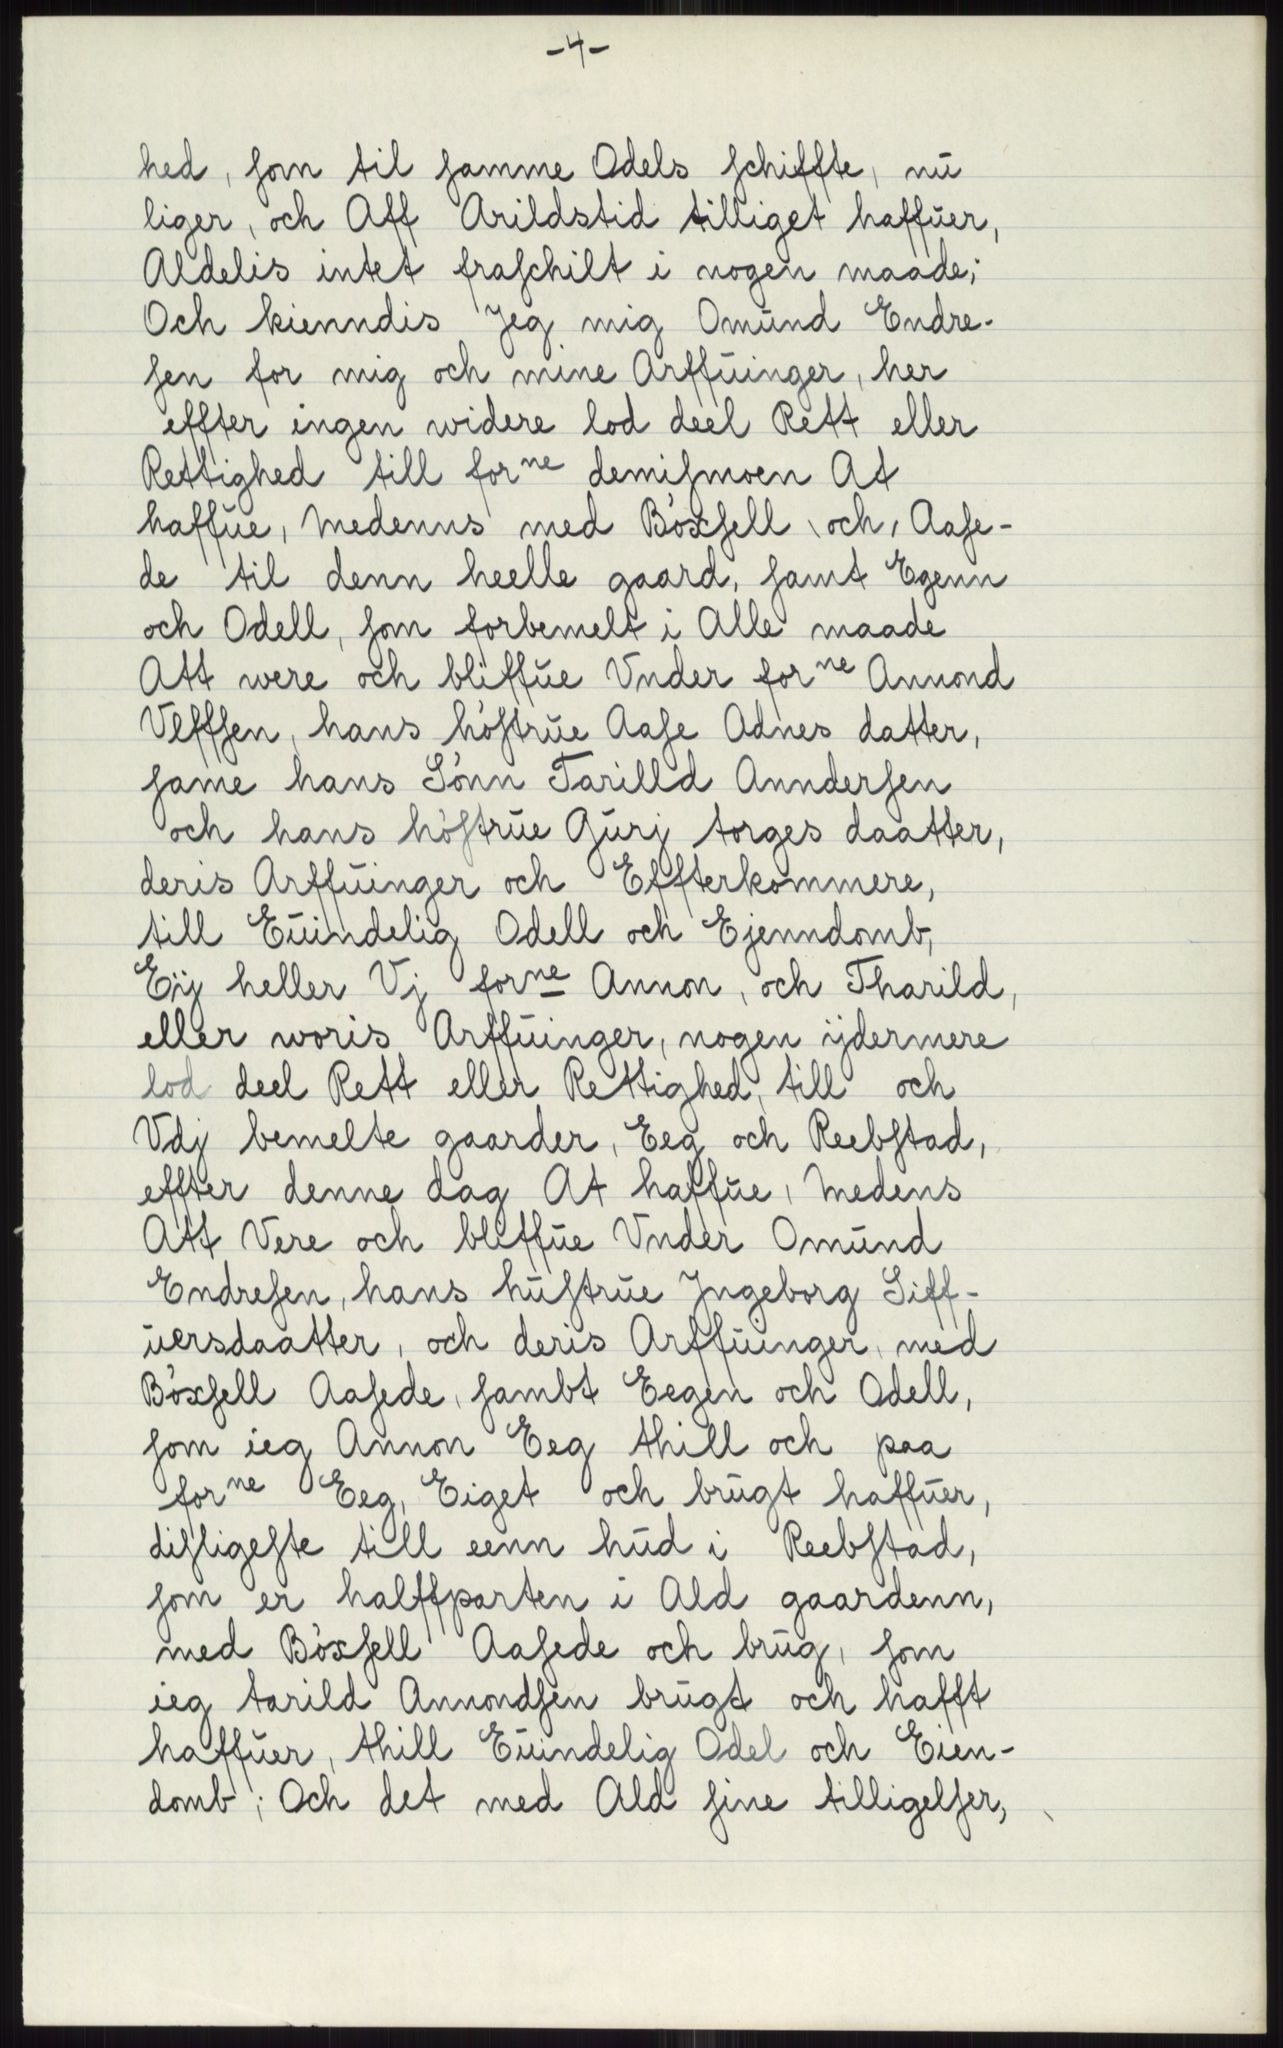 -4-
hed, som til samme Odels schiffte, nú
liger, och Aff Arildstid tilliget haffúer,
Aldelis intet fraschilt i nogen maade;
Och kienndis Jeg mig Omúnd Endre-
sen for mig och mine Arffúinger, her
effter ingen widere lod deel Rett eller
Rettighed till forne demismoen At
haffúe, Medenns med Böxsell och, Aase-
de til denn heelle gaard, samt Egenn
och Odell, som forbemelt i Alle maade
Att were och bliffúe Vnder forne Annond
Vlffsen, hans höstrúe Aase Adnes datter,
same hans Sönn Tarilld Anndersen
och hans höstrúe Gúrj torges daatter,
deris Arffúinger och Effterkommere,
till Eúindelig Odell och Ejenndomb,
Eÿ heller Vj forne Annon, och Tharild,
eller woris Arffúinger, nogen ÿdermere
lod deel Rett eller Rettighed, till och
Vdj bemelte gaarder, Eeg och Reebstad,
effter denne dag At haffúe, Medens
Att Vere och bliffúe Vnder Omúnd
Endresen, hans hústrúe Jngeborg Siff-
úersdaatter, och deris Arffúinger, med
Böxsell Aasede, sambt Eegen och Odell,
som ieg Annon Eeg thill och paa
forne Eeg, Eiget och brúgt haffúer,
disligeste till eenn húd i Reebstad,
som er halffparten i Ald gaardenn,
med Böxsell Aasede och brúg, som
ieg tarild Annondsen brúgt och hafft
haffúer, thill Eúindelig Odel och Eien-
domb; Och det med Ald sine tilligelser,